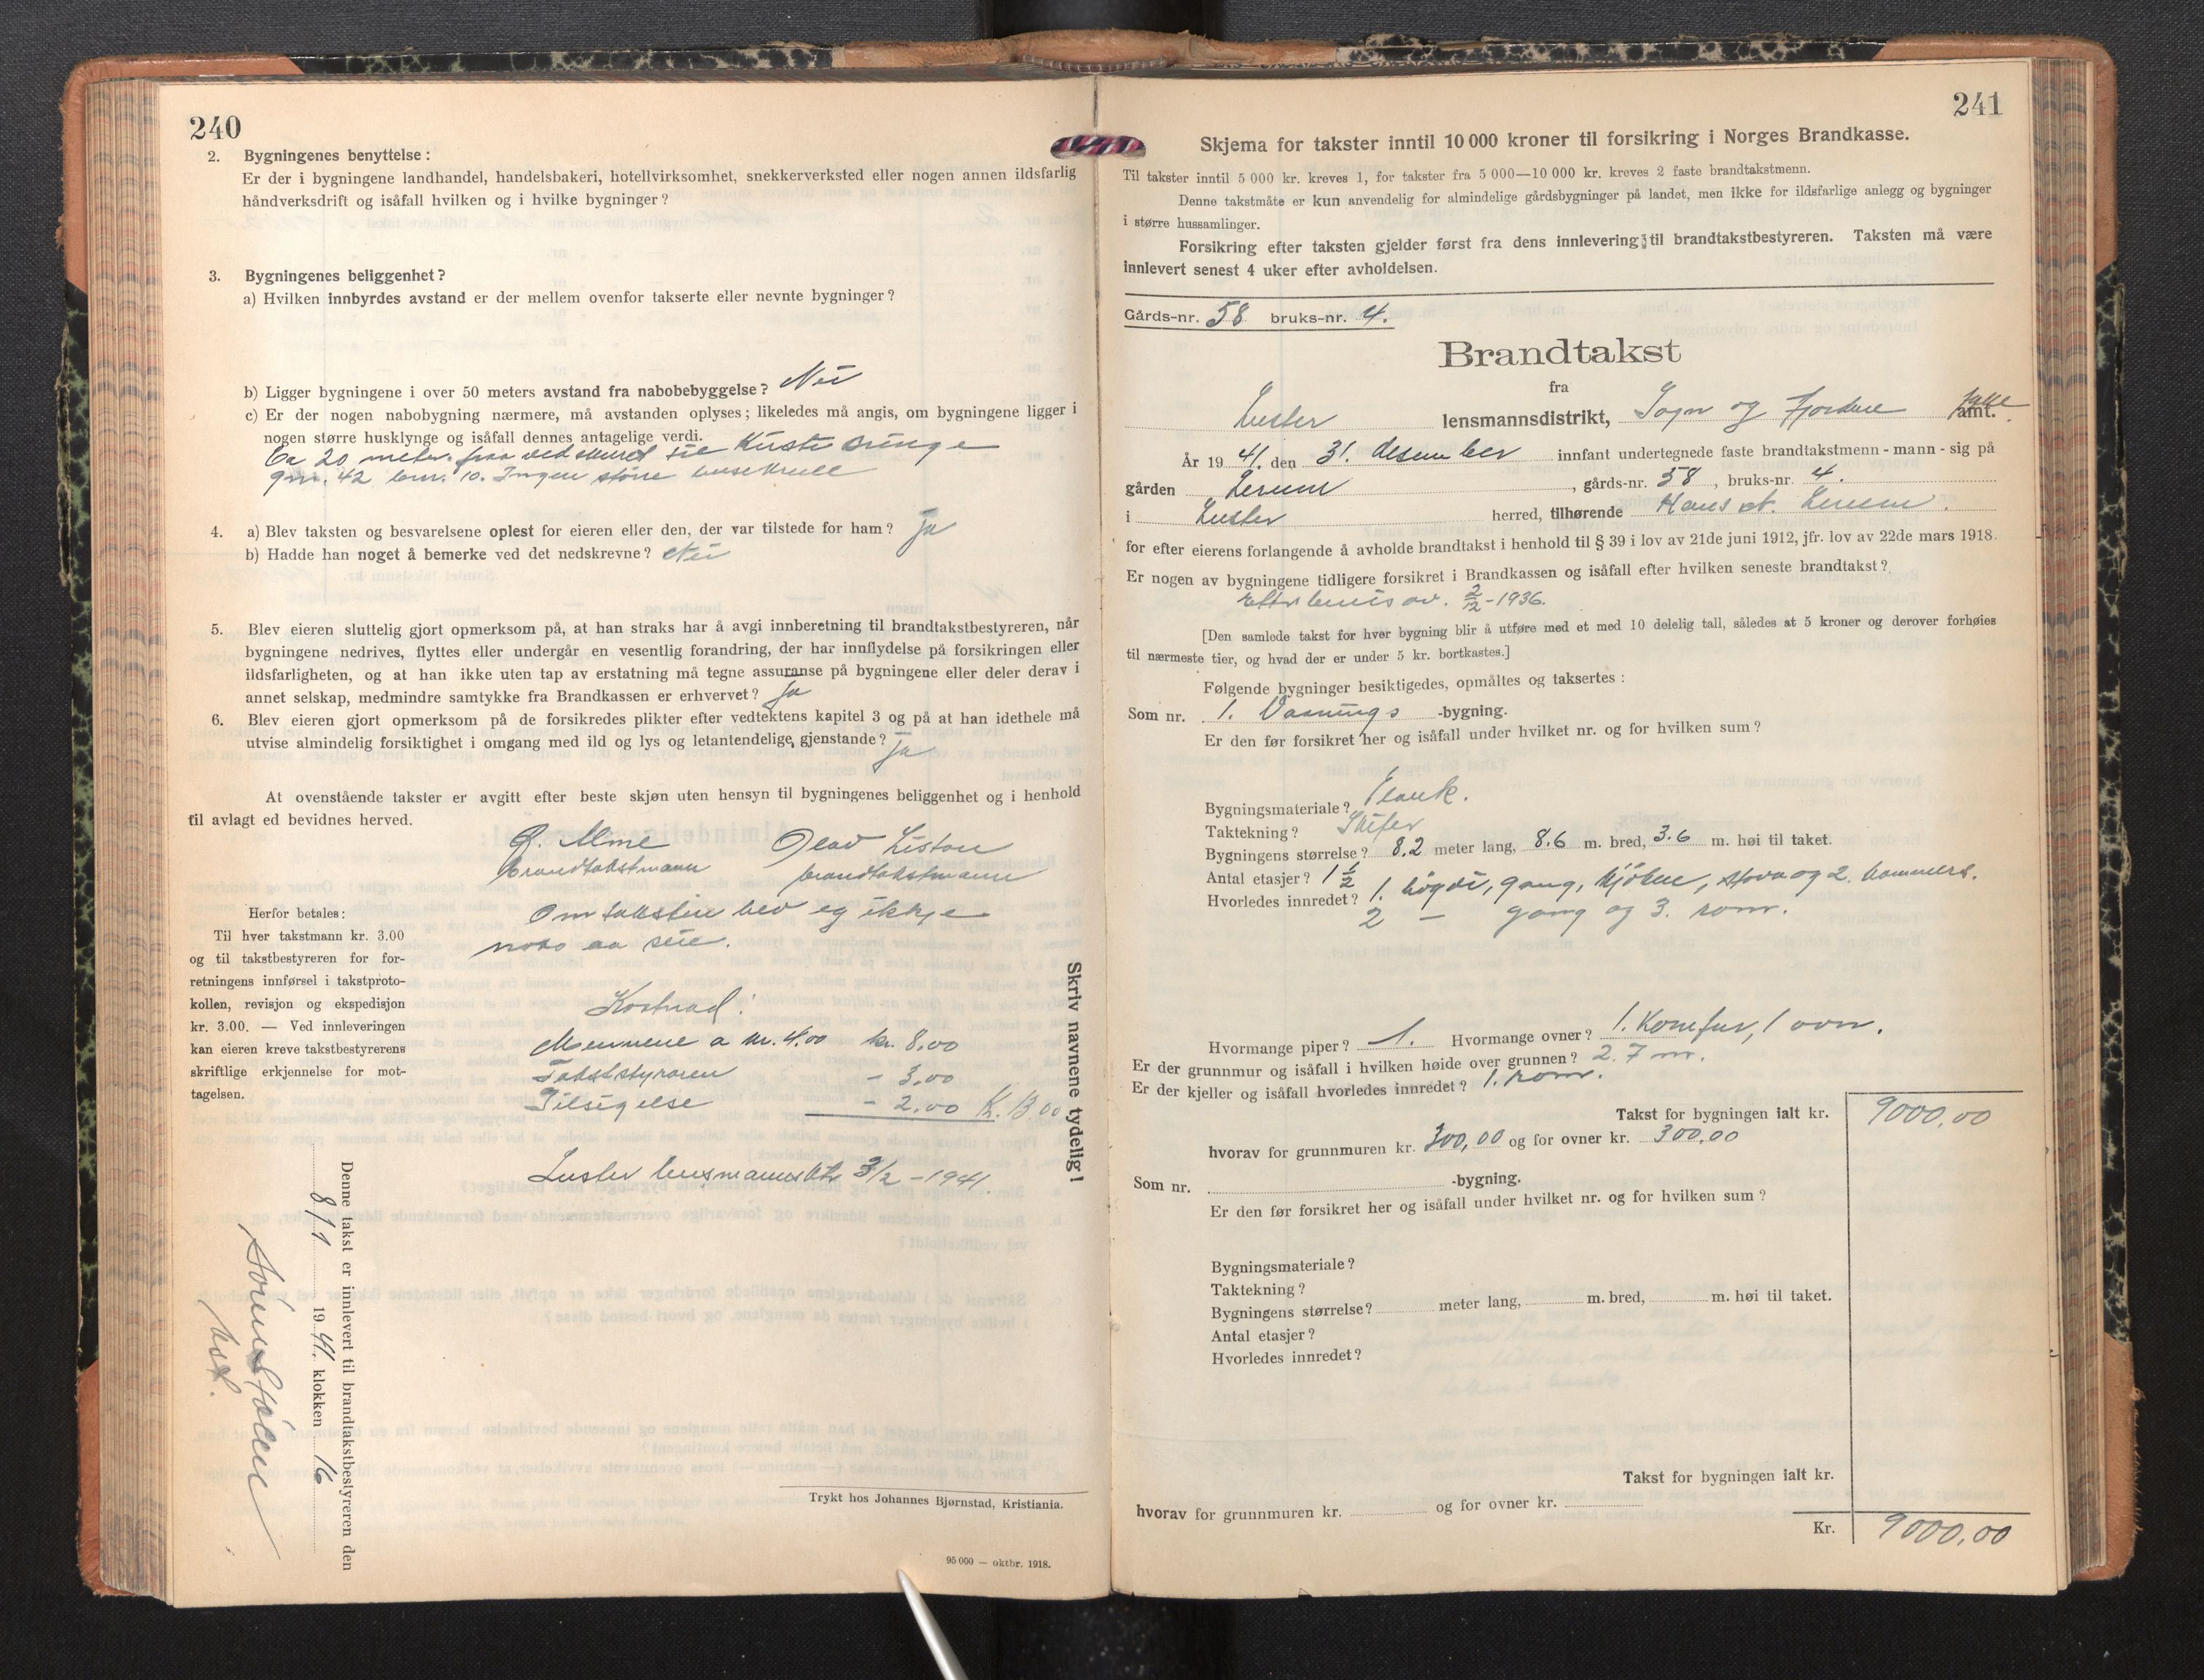 240
2. Bygningenes benyttelse:
Er der i bygningene landhandel, handelsbakeri, hotellvirksomhet, snekkerverksted eller nogen annen ildsfarlig
håndverksdrift og isåfall hvilken og i hvilke bygninger?
3. Bygningenes beliggenhet?
a) Hvilken innbyrdes avstand er der mellem ovenfor takserte eller nevnte bygninger?
b) Ligger bygningene i over 50 meters avstand fra nabobebyggelse? Nei
c) Er der nogen nabobygning nærmere, må avstanden oplyses; likeledes må angis, om bygningene ligger i
nogen større husklynge og isåfall dennes antagelige verdi.
Ca 20 meter fraa vedskuret til Kirsti Bringe
gnr. 42 bnr. 10. Ingen större
4. a) Blev taksten og besvarelsene oplest for eieren eller den, der var tilstede for ham? Ja
b) Hadde han noget å bemerke ved det nedskrevne? Nei
5. Blev eieren sluttelig gjort opmerksom på, at han straks har å avgi innberetning til brandtakstbestyreren, når
bygningene nedrives, flyttes eller undergår en vesentlig forandring, der har innflydelse på forsikringen eller
ildsfarligheten, og at han ikke uten tap av erstatning må tegne assuranse på bygningene eller deler derav i
annet selskap, medmindre samtykke fra Brandkassen er erhvervet? Ja
6. Blev eieren gjort opmerksom på de forsikredes plikter efter vedtektens kapitel 3 og på at han idethele må
utvise almindelig forsiktighet i omgang med ild og lys og letantendelige gjenstande? Ja
At ovenstående takster er avgitt efter beste skjøn uten hensyn til bygningenes beliggenhet og i henhold
til avlagt ed bevidnes herved.
Alme Olav Liston
brandtakstmann brandtakstmann
Om taksten hev eg ikkje
noko aa seie.
Herfor betales:
Til hver takstmann kr. 3.00
og til takstbestyreren for for-
retningens innførsel i takstproto-
kollen, revisjon og ekspedisjon
kr. 3.00. — Ved innleveringen
kan eieren kreve takstbestyrerens
skriftlige erkjennelse for mot-
tagelsen.
Kostnad:
Mennene a kr. 4.00 kr. 8.00
Takststyraren - 3,00
Tilsigelse - 2.00 Kr. 13.00
Luster lensmannsktr 3/2 - 1941.
Skriv navnene tydelig!
Denne takst er innlevert til brandtakstbestyreren den
8/1 1941. klokken 16
Trykt hos Johannes Bjørnstad, Kristiania.
95 000 — oktbr. 1918.
241
Skjema for takster inntil 10 000 kroner til forsikring i Norges Brandkasse.
Til takster inntil 5 000 kr. kreves 1, for takster fra 5 000—10 000 kr. kreves 2 faste brandtakstmenn.
Denne takstmåte er kun anvendelig for almindelige gårdsbygninger på landet, men ikke for ildsfarlige anlegg og bygninger
i større hussamlinger.
Forsikring efter taksten gjelder først fra dens innlevering til brandtakstbestyreren. Taksten må være
innlevert senest 4 uker efter avholdelsen.
Gårds-nr. 58 bruks-nr. 4.
Brandtakst
fra
Luster lensmannsdistrikt, Sogn og Fjordane fylke amt.
År 1941. den 31. desember innfant undertegnede faste brandtakstmenn - mann - sig på
gården Lerum, gårds-nr. 58, bruks-nr. 4.
i Luster herred, tilhørende Hans A. Lerum.
for efter eierens forlangende å avholde brandtakst i henhold til § 39 i lov av 21de juni 1912, jfr. lov av 22de mars 1918.
Er nogen av bygningene tidligere forsikret i Brandkassen og isåfall efter hvilken seneste brandtakst?
Etter bevis av. 2/12 - 1936.
[Den samlede takst for hver bygning blir å utføre med et med 10 delelig tall, således at 5 kroner og derover forhøies
til nærmeste tier, og hvad der er under 5 kr. bortkastes.]
Følgende bygninger besiktigedes, opmåltes og taksertes:
Som nr. 1. Vaanings -bygning.
Er den før forsikret her og isåfall under hvilket nr. og for hvilken sum?
Bygningsmateriale? Plank.
Taktekning? Skifer
Bygningens størrelse? 8.2 meter lang, 8.6 m. bred, 3.6 m. høi til taket.
Antal etasjer? 1 1/2
Hvorledes innredet? 1. högdi, gang, kjöken, stova og 2. kammers.
2 — gang og 3. rom.
Hvormange piper? 1. Hvormange ovner? 1. Komfur, 1 ovn.
Er der grunnmur og isåfall i hvilken høide over grunnen? 2.7 m.
Er der kjeller og isåfall hvorledes innredet? 1. rom.
Takst for bygningen ialt kr. 9000.00
hvorav for grunnmuren kr. 300,00 og for ovner kr. 300.00
Som nr. -bygning.
Er den før forsikret her og isåfall under hvilket nr. og for hvilken sum?
Bygningsmateriale?
Taktekning?
Bygningens størrelse? meter lang, m. bred, m. høi til taket.
Antal etasjer?
Hvorledes innredet?
Takst for bygningen ialt kr.
hvorav for grunnmuren kr. og for ovner kr.
Kr. 9000.00